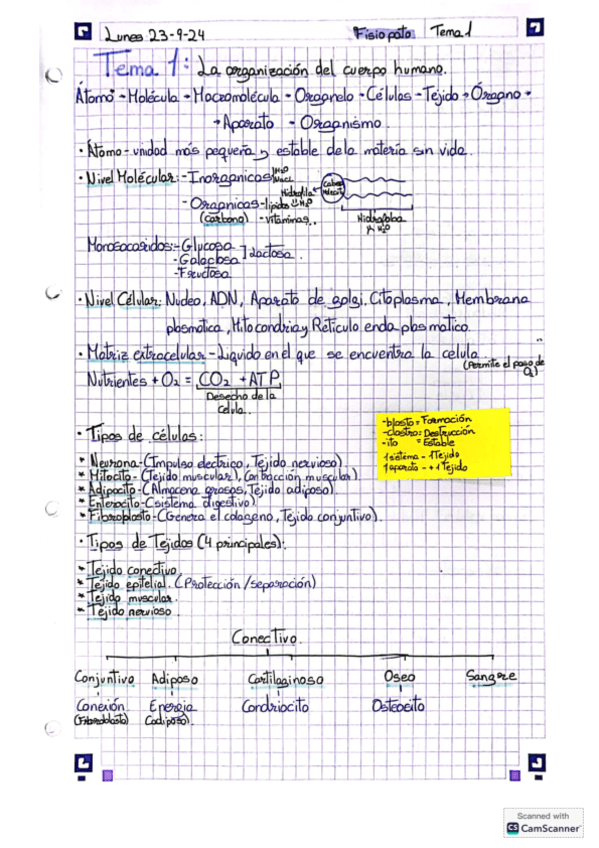 Lunes 23-9-24
Fisiopato Tema 1
Tema 1: La organización del cuerpo humano.
Átomo - Molécula - Macromolécula - Oraganelo - Células - Tejido → Órgano →
→ Aparato - Organismo.
· Átomo - unidad más pequeña y estable de la materia sin vida.
· Nivel Molécular: - Inorganicas H2O NaCl
- Organicas - lipidos
(Carbono) - vitaminas..
Hidrofila
Si H2O
Cabeza
Hidrofoba
H2O
Monosacaridos: - Glucosa
- Galactosa
- Fructosa
] Lactosa.
· Nivel Célular: Nucleo, ADN, Aparato de golgi, Citoplasma, Membrana
plasmática, Mitocondria y Retículo endoplasmatico.
· Matriz extracelular - Liquido en el que se encuentra la celula.
(Permite el paso de O2)
Nutrientes + O2 = CO2 + ATP
Desecho de la
celula.
· Tipos de células:
-blasto = Formación
-clastro = Destrucción
-ito = Estable
1 sistema - 1 Tejido
1 aparato - + 1 Tejido
* Neurona - (Impulso electrico, Tejido nervioso)
* Miocito - (Tejido muscular), (contracción muscular)
* Adipocito - (Almacena grasas, Tejido adiposo)
* Enterocito - (sistema digestivo)
* Fibroblasto - (Genera el colageno, Tejido conjuntivo).
· Tipos de Tejidos (4 principales):
* Tejido conectivo.
* Tejido epitelial. (Protección/separación)
* Tejido muscular.
* Tejido nervioso.
Conectivo.
Conjuntivo Adiposo Cartilaginoso Oseo Sangre
Conexión Energia Condriocito Osteocito
(Fibroblasto) (adiposo)
Scanned with
CS CamScanner